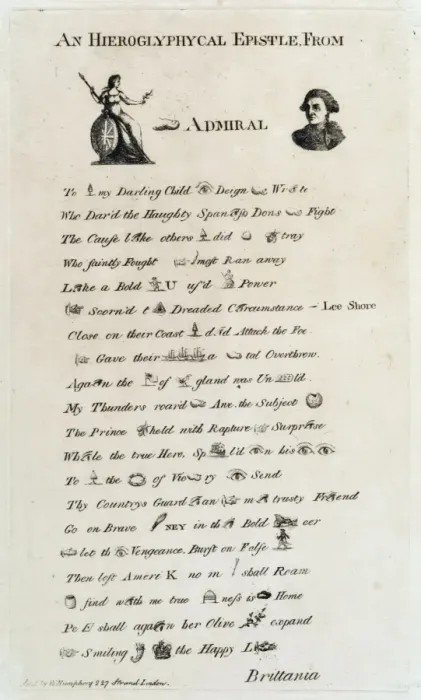 AN HIEROGLYPHYCAL EPISTLE, FROM
ADMIRAL
To my Darling Child Deign Wr te
Who Dar'd the Haughty Span Dons Fight
The Cause l ke others did tray
Who faintly Fought most Ran away
L ke a Bold U us'd Power
Scorn'd t Dreaded C rcumstance – Lee Shore
Close on their Coast d d Attack the Foe
Gave their a tal Overthrow.
Aga n the of gland was Un ld.
My Thunders roar'd Awe the Subject
The Prince held with Rapture Surpr se
Wh le the true Hero, Sp l'd n his
To the of Vic ry Send
Thy Countrys Guard an m trusty Fr end
Go on Brave NEY in th Bold eer
let th Vengeance, Burst on False
Then left Ameri K no m shall Roam
find w th me true ness is Home
Pe E shall aga n her Olive expand
Smiling the Happy L
Brittania
Pub. by W Humphrey 227 Strand London.